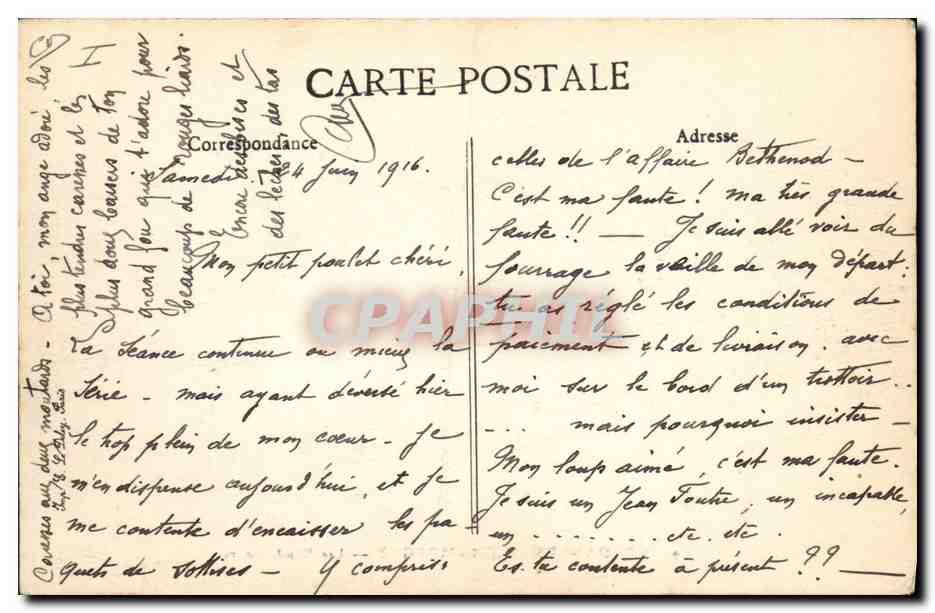 CARTE POSTALE
Correspondance
Adresse
Samedi 24 Juin 1916.
Mon petit poulet chéri,
La séance continue ou mieux la
série - mais ayant déversé hier
le trop plein de mon cœur - je
m'en dispense aujourd'hui, et je
me contente d'encaisser les pa
quets de sottises - y compris
celles de l'affaire Bethenod -
C'est ma faute ! ma très grande
faute !! - Je suis allé voir du
fourrage la veille de mon départ.
tu as réglé les conditions de
paiement et de livraison. avec
moi sur le bord d'un trottoir..
... mais pourquoi insister -
Mon loup aimé, c'est ma faute.
Je suis un Jean Foutre, un incapable,
un ........ etc. etc.
Es-tu contente à présent ?? -
Caresses aux deux moutards - A toi, mon ange adoré les
plus tendres caresses et les
plus doux baisers de ton
grand fou qui t'adore pour
beaucoup de rouges liards.
encore des bises et
des lèches des tas
Imp. E. Le Deley, Paris
CPAPHIL